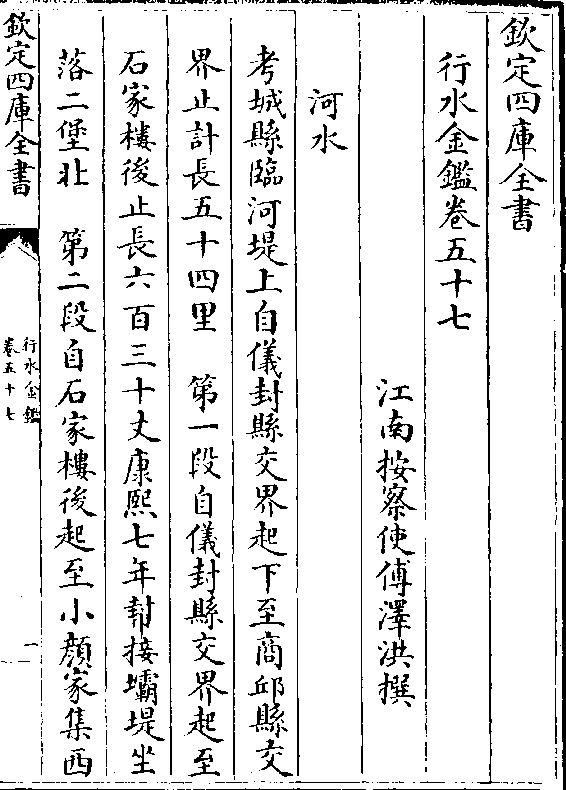 欽定四庫全書
行水金鑑卷五十七
江南按察使傅澤洪撰
河水
考城縣臨河堤上自儀封縣交界起下至商邱縣交
界止計長五十四里　第一段自儀封縣交界起至
石家樓後止長六百三十丈康熙七年幇接壩堤坐
落二堡北　第二段自石家樓後起至小顏家集西
欽定四庫全書
行水金鑑
卷五十七
一